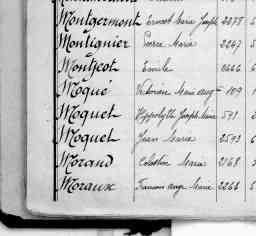 Montgermont Ernest Marie Joseph 2278
Montignier Pierre Marie 2247 5
Montjcot Emile 2666 6
Moqué Victorien Marie ang 109 1
Moquet Hippolyte Joseph Marie 571 2
Moquet Jean Marie 2593 6
Morand Célestin Marie 2168
Moraux Francois ange Marie 2264